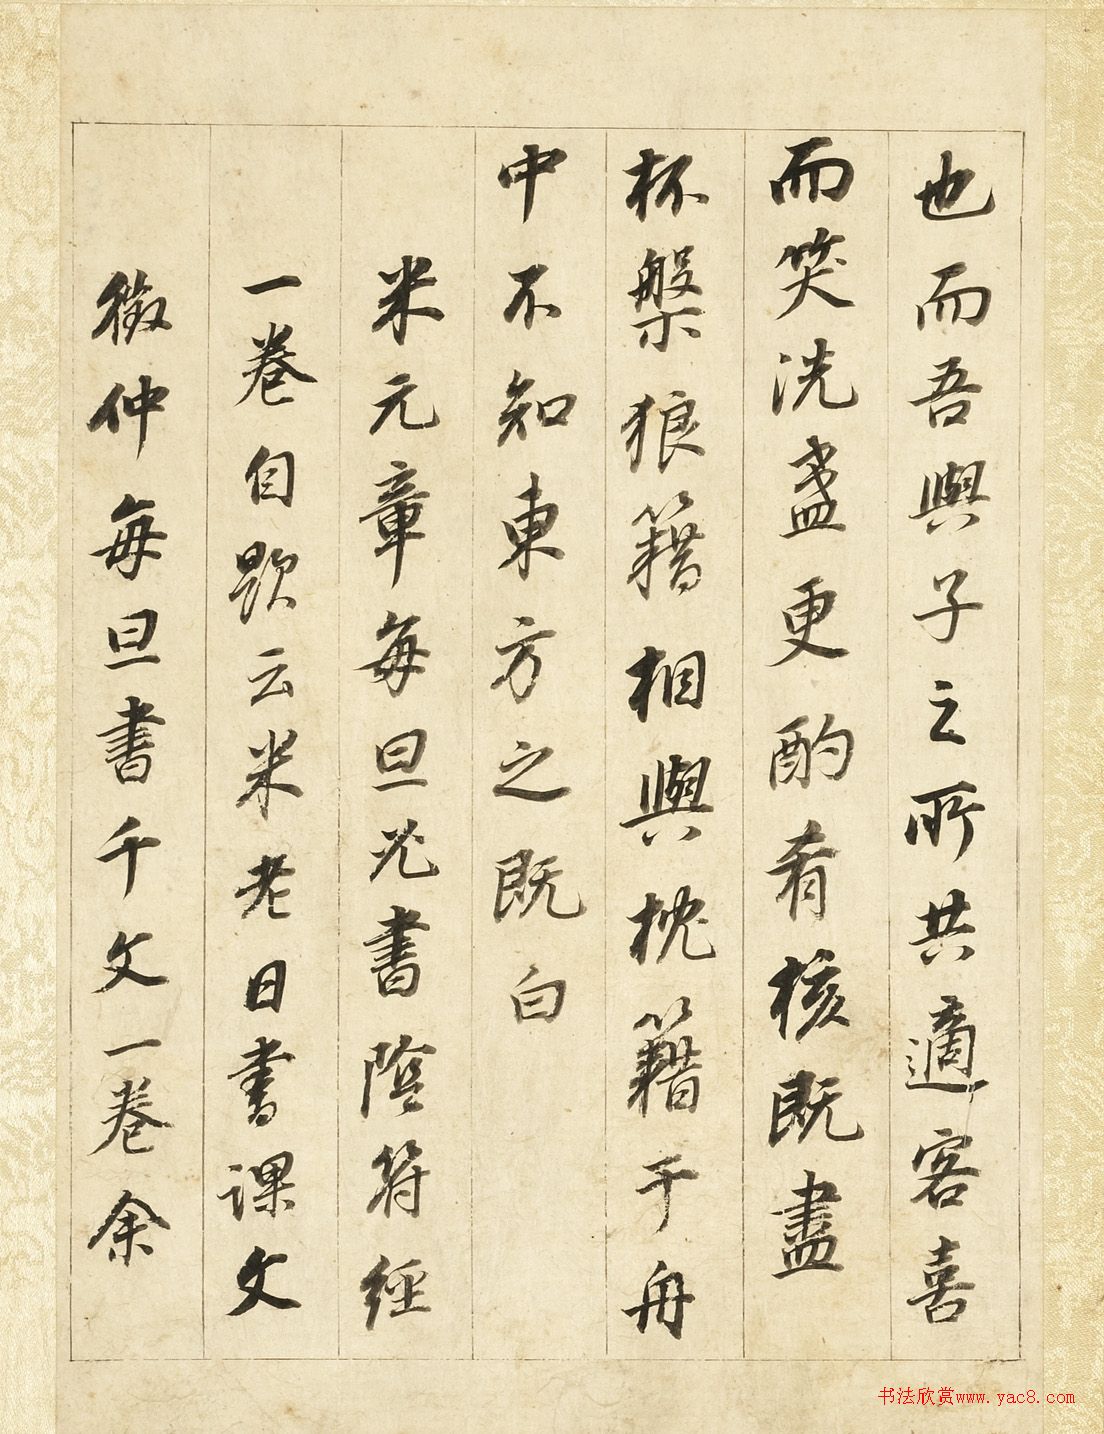 也而吾與子之所共適客喜
而笑洗盞更酌肴核既盡
杯槃狼籍相與枕籍于舟
中不知東方之既白
米元章每旦必書陰符經
一卷自題云米老日書課文
徵仲每旦書千文一卷余
书法欣赏www.yac8.com